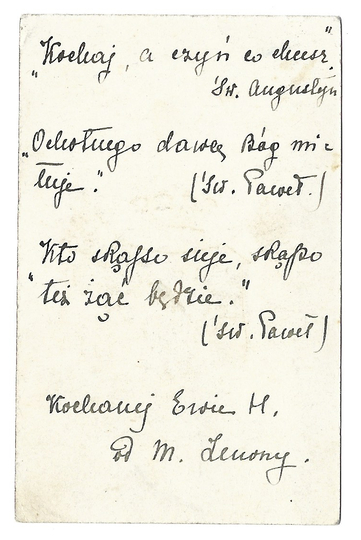 "Kochaj, a czyń co chcesz".
Św. Augustyn
"Ochotnego dawcę Bóg mi-
łuje." (Św. Paweł.)
"Kto skąpo sieje, skąpo
też żąć będzie."
(Św. Paweł)
Kochanej Ewie H.
od M. Zenony.